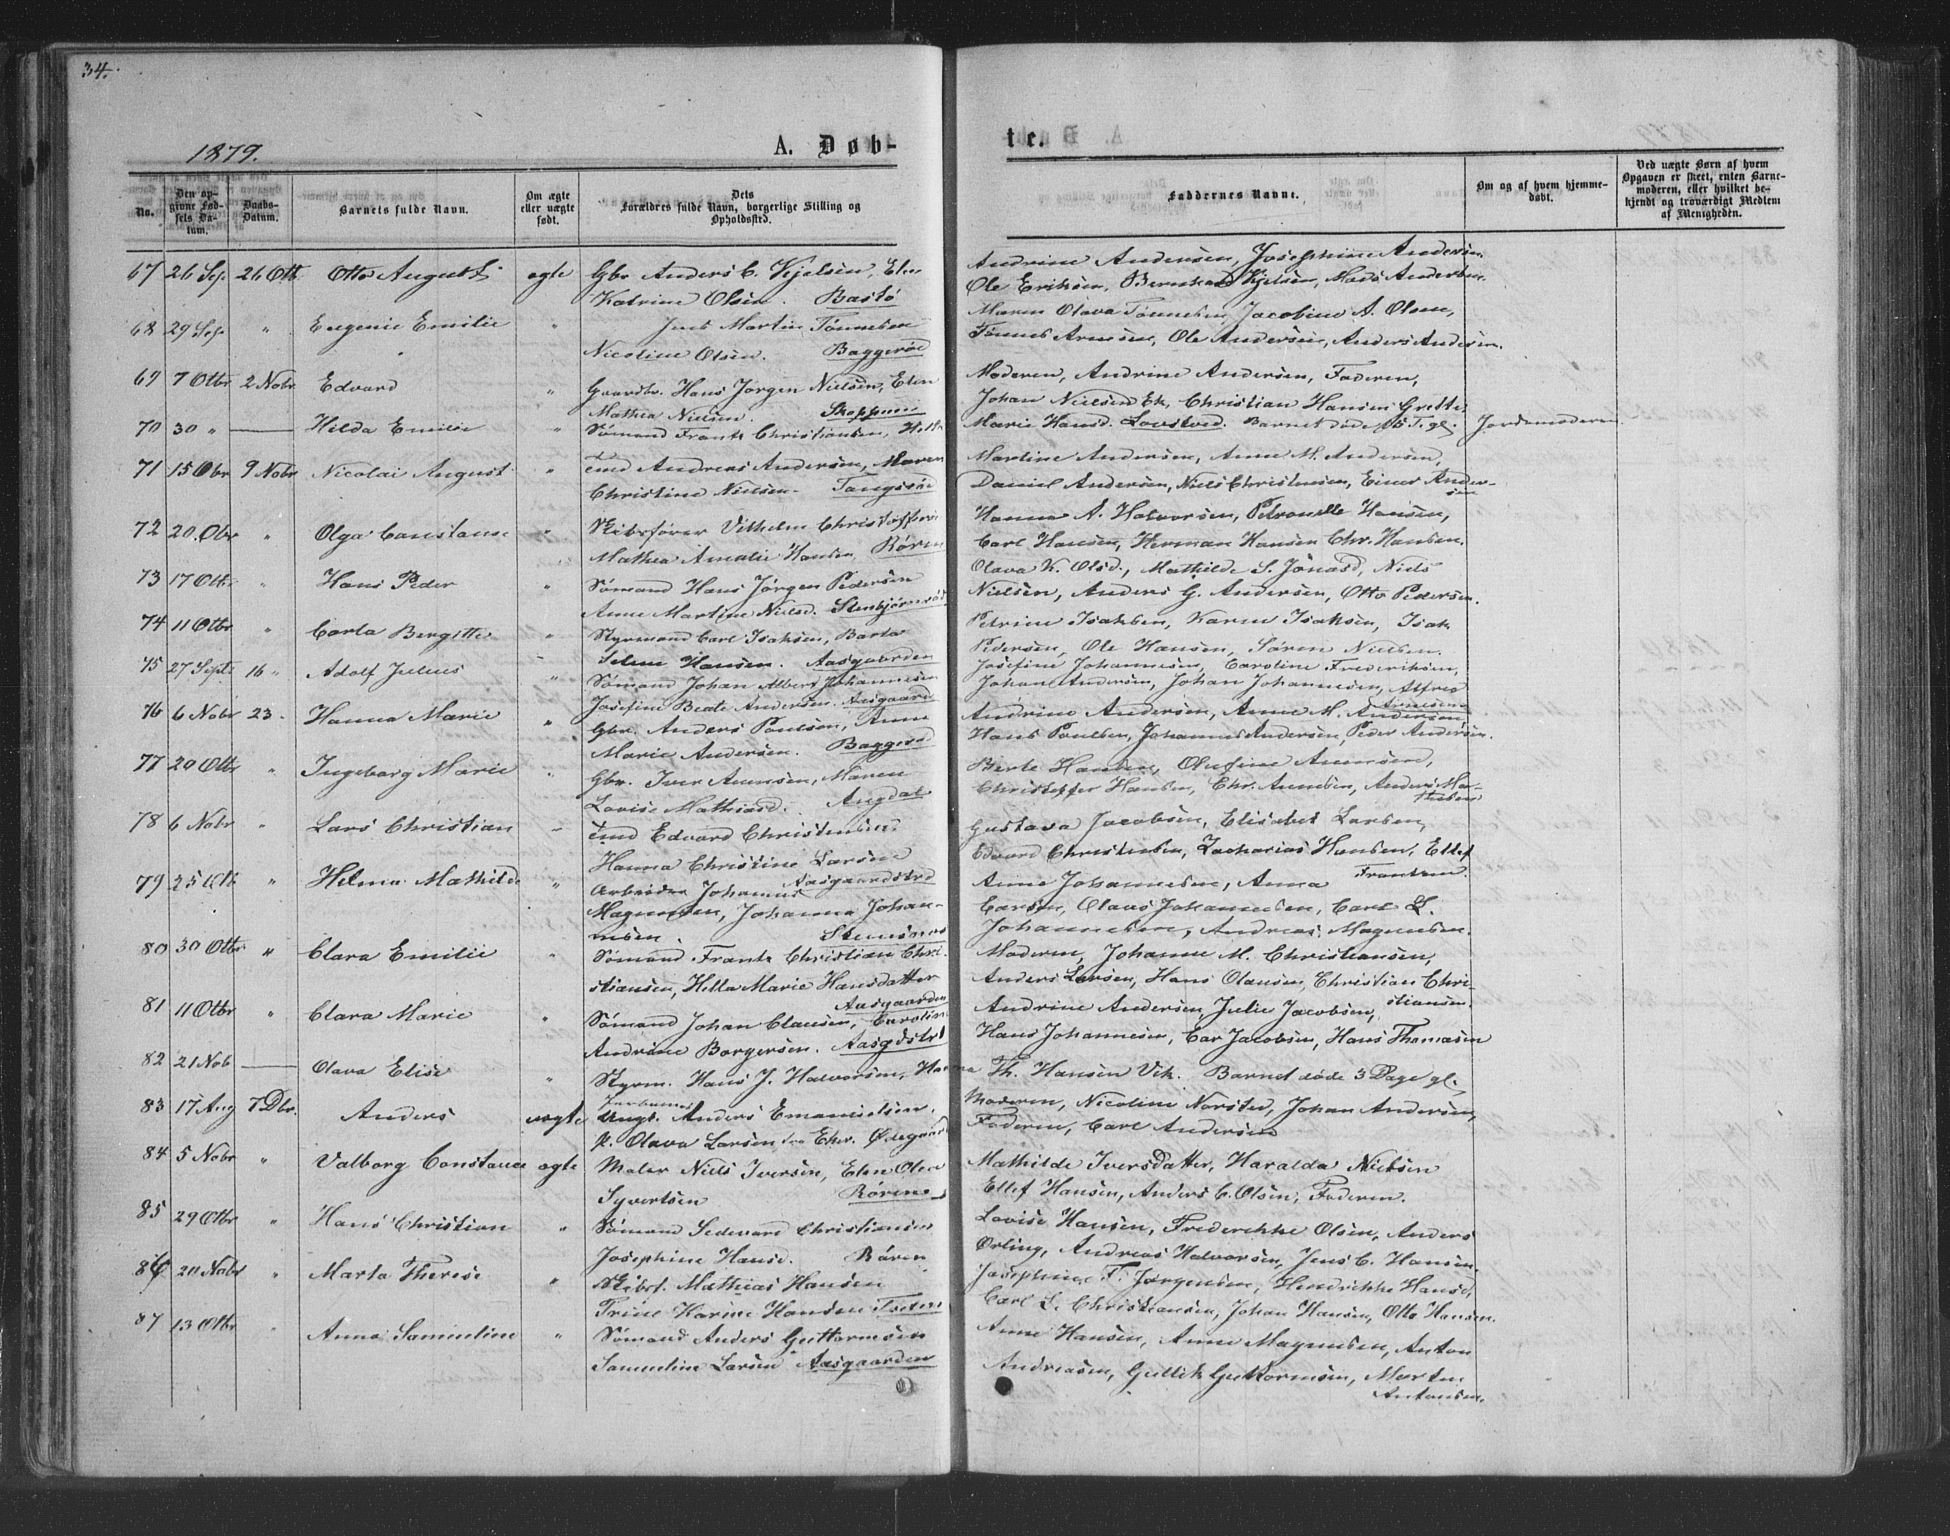 34.
1879.
A. Døb-
te.
No.
Den op-
givne Fød-
sels Da-
tum.
Daabs-
Datum.
Barnets fulde Navn.
Om ægte
eller uægte
født.
Dets
Forældres fulde Navn, borgerlige Stilling og
Opholdssted.
Faddernes Navne.
Om og af hvem hjemme-
døbt.
Ved uægte Børn af hvem
Opgaven er skeet, enten Barne-
moderen, eller hvilket be-
kjendt og troværdigt Medlem
af Menigheden.
67 26 Sep. 26 Otb Otto August ægte Gbr Anders C. Kjelsen, Elen
Katrine Olsen. Bastö
Andrine Andersen, Josephine Andersen
Ole Eriksen, Bernhard Kjelsen, Mads Andersen
68 29 Sep. " Eugenie Emilie " Jens Martin Tönnesen
Nicoline Olsen. Baggeröd
Maren Olava Tönnesen, Jacobine A. Olsen,
Tönnes Arnesen, Ole Andersen, Anders Andersen.
69 7 Otbr 2 Nobr Edvard " Gaardbr. Hans Jörgen Nielsen, Elen
Mathea Nielsen. Skoppum
Moderen, Andrine Andersen, Faderen,
Johan Nielsen Ek, Christian Hansen Grette.
70 30 " — Hilda Emilie " Sömand Frantz Christiansen,
Marie Hansd. Lovstved. Barnet döde gl. Jordemoderen
71 15 Obr 9 Nobr Nicolai August " Tmd Andreas Andersen, Maren
Christine Nielsen. Tangsröd
Martine Andersen, Anne M. Andersen,
Daniel Andersen, Niels Christensen, Einer Ander-
sen
72 20. Obr " Olga Constanse " Skibsförer Vilhelm Christoffersen
Mathea Amalie Hansen. Rören
Hanna A. Halvorsen, Petronelle Hansen,
Carl Hansen, Herman Hansen Chr. Hansen.
73 17 Otb " Hans Peder " Sömand Hans Jörgen Pedersen
Anne Martine Nielsd. Stenbjörnröd
Olava K. Olsd., Mathilde S. Jonasd, Niels
Nielsen, Anders G. Andersen, Otto Pedersen.
74 11 Otbr " Carla Bergitte " Styrmand Carl Isaksen, Berta
Seline Hansen. Aasgaarden
Petrine Isaksen, Karen Isaksen, Isak
Pedersen, Ole Hansen, Sören Nielsen.
75 27 Septr 16 " Adolf Julius " Sömand Johan Albert Johannesen
Josefine Beate Andersen. Aasgaard
Josefine Johannesen, Caroline Frederiksen,
Johan Andersen, Johan Johannesen, Alfred
Arnesen
76 6 Nobr 23. Hanna Marie " Gbr. Anders Paulsen, Anne
Marie Andersen. Baggeröd
Andrine Andersen, Anne M. Andersen,
Hans Paulsen, Johannes Andersen, Peder Andersen.
77 20 Otbr " Ingeborg Marie " Gbr. Iver Anunsen, Maren
Lovise Mathiasd. Angdal
Berte Hansen, Olufine Anunsen,
Christoffer Hansen, Chr. Anunsen, Anders Ma-
thisen
78 6 Nobr " Lars Christian " Tmd Edvard Christensen,
Hanna Christine Larsen
Aasgaardstrd
Gustava Jacobsen, Elisabet Larsen,
Edvard Christensen, Zacharias Hansen, Ellef
Frantsen.
79 25 Otb " Helma Mathilde " Arbeider Johannes
Magnussen, Johanna Johan-
nesen.
Anne Johannesen, Anna
Larsen, Olaus Johannesen, Carl L.
Johannesen, Andreas Magnussen.
80 30 Otbr " Clara Emilie " Sömand Frantz Christian Chri-
stiansen, Hella Marie Hansdatter
Aasgaarden
Moderen, Johanne M. Christiansen,
Anders Larsen, Hans Olausen, Christian Chri-
stiansen.
81 11 Otbr " Clara Marie " Sömand Johan Clausen, Caroline
Andrine Borgersen. Aasgdstrd
Andrine Andersen, Julie Jacobsen,
Hans Johannesen, Car Jacobsen, Hans Thomasen
82 21 Nob — Olava Elise " Styrm. Hans J. Halvorsen, Hanna
Th. Hansen Vik. Barnet döde 3 Dage gl.
83 17 Aug 7 Dbr. Anders uægte Ungk. Anders Emanuelsen.
P. Olava Larsen fra Ødegaard
Moderen, Nicoline Norsted, Johan Andersen,
Faderen, Carl Andersen
84 5 Nobr " Valborg Constance ægte Maler Niels Iversen, Elen Olea
Syvertsen Rören
Mathilde Iversdatter, Haralda Nielsen
Ellef Hansen, Anders C. Olsen, Faderen.
85 29 Otbr " Hans Christian " Sömand Sedevard Christiansen
Josephine Hansd. Rören
Lovise Hansen, Frederikke Olsen, Anders
Ørling, Andreas Halvorsen, Jens C. Hansen.
86 20 Nobr " Marta Therese " Skibsf. Mathias Hansen
Trine Karine Hansen
Josephine F. Jörgensen, Hendrikke Hansd.
Carl L. Christiansen, Johan Hansen, Otto Hansen.
87 13 Otbr " Anna Samueline " Sömand Anders Guttormsen
Samueline Larsen Aasgaarden
Anne Hansen, Anne Magnussen, Anton
Andreasen, Gullik Guttormsen, Morten
Antonsen.